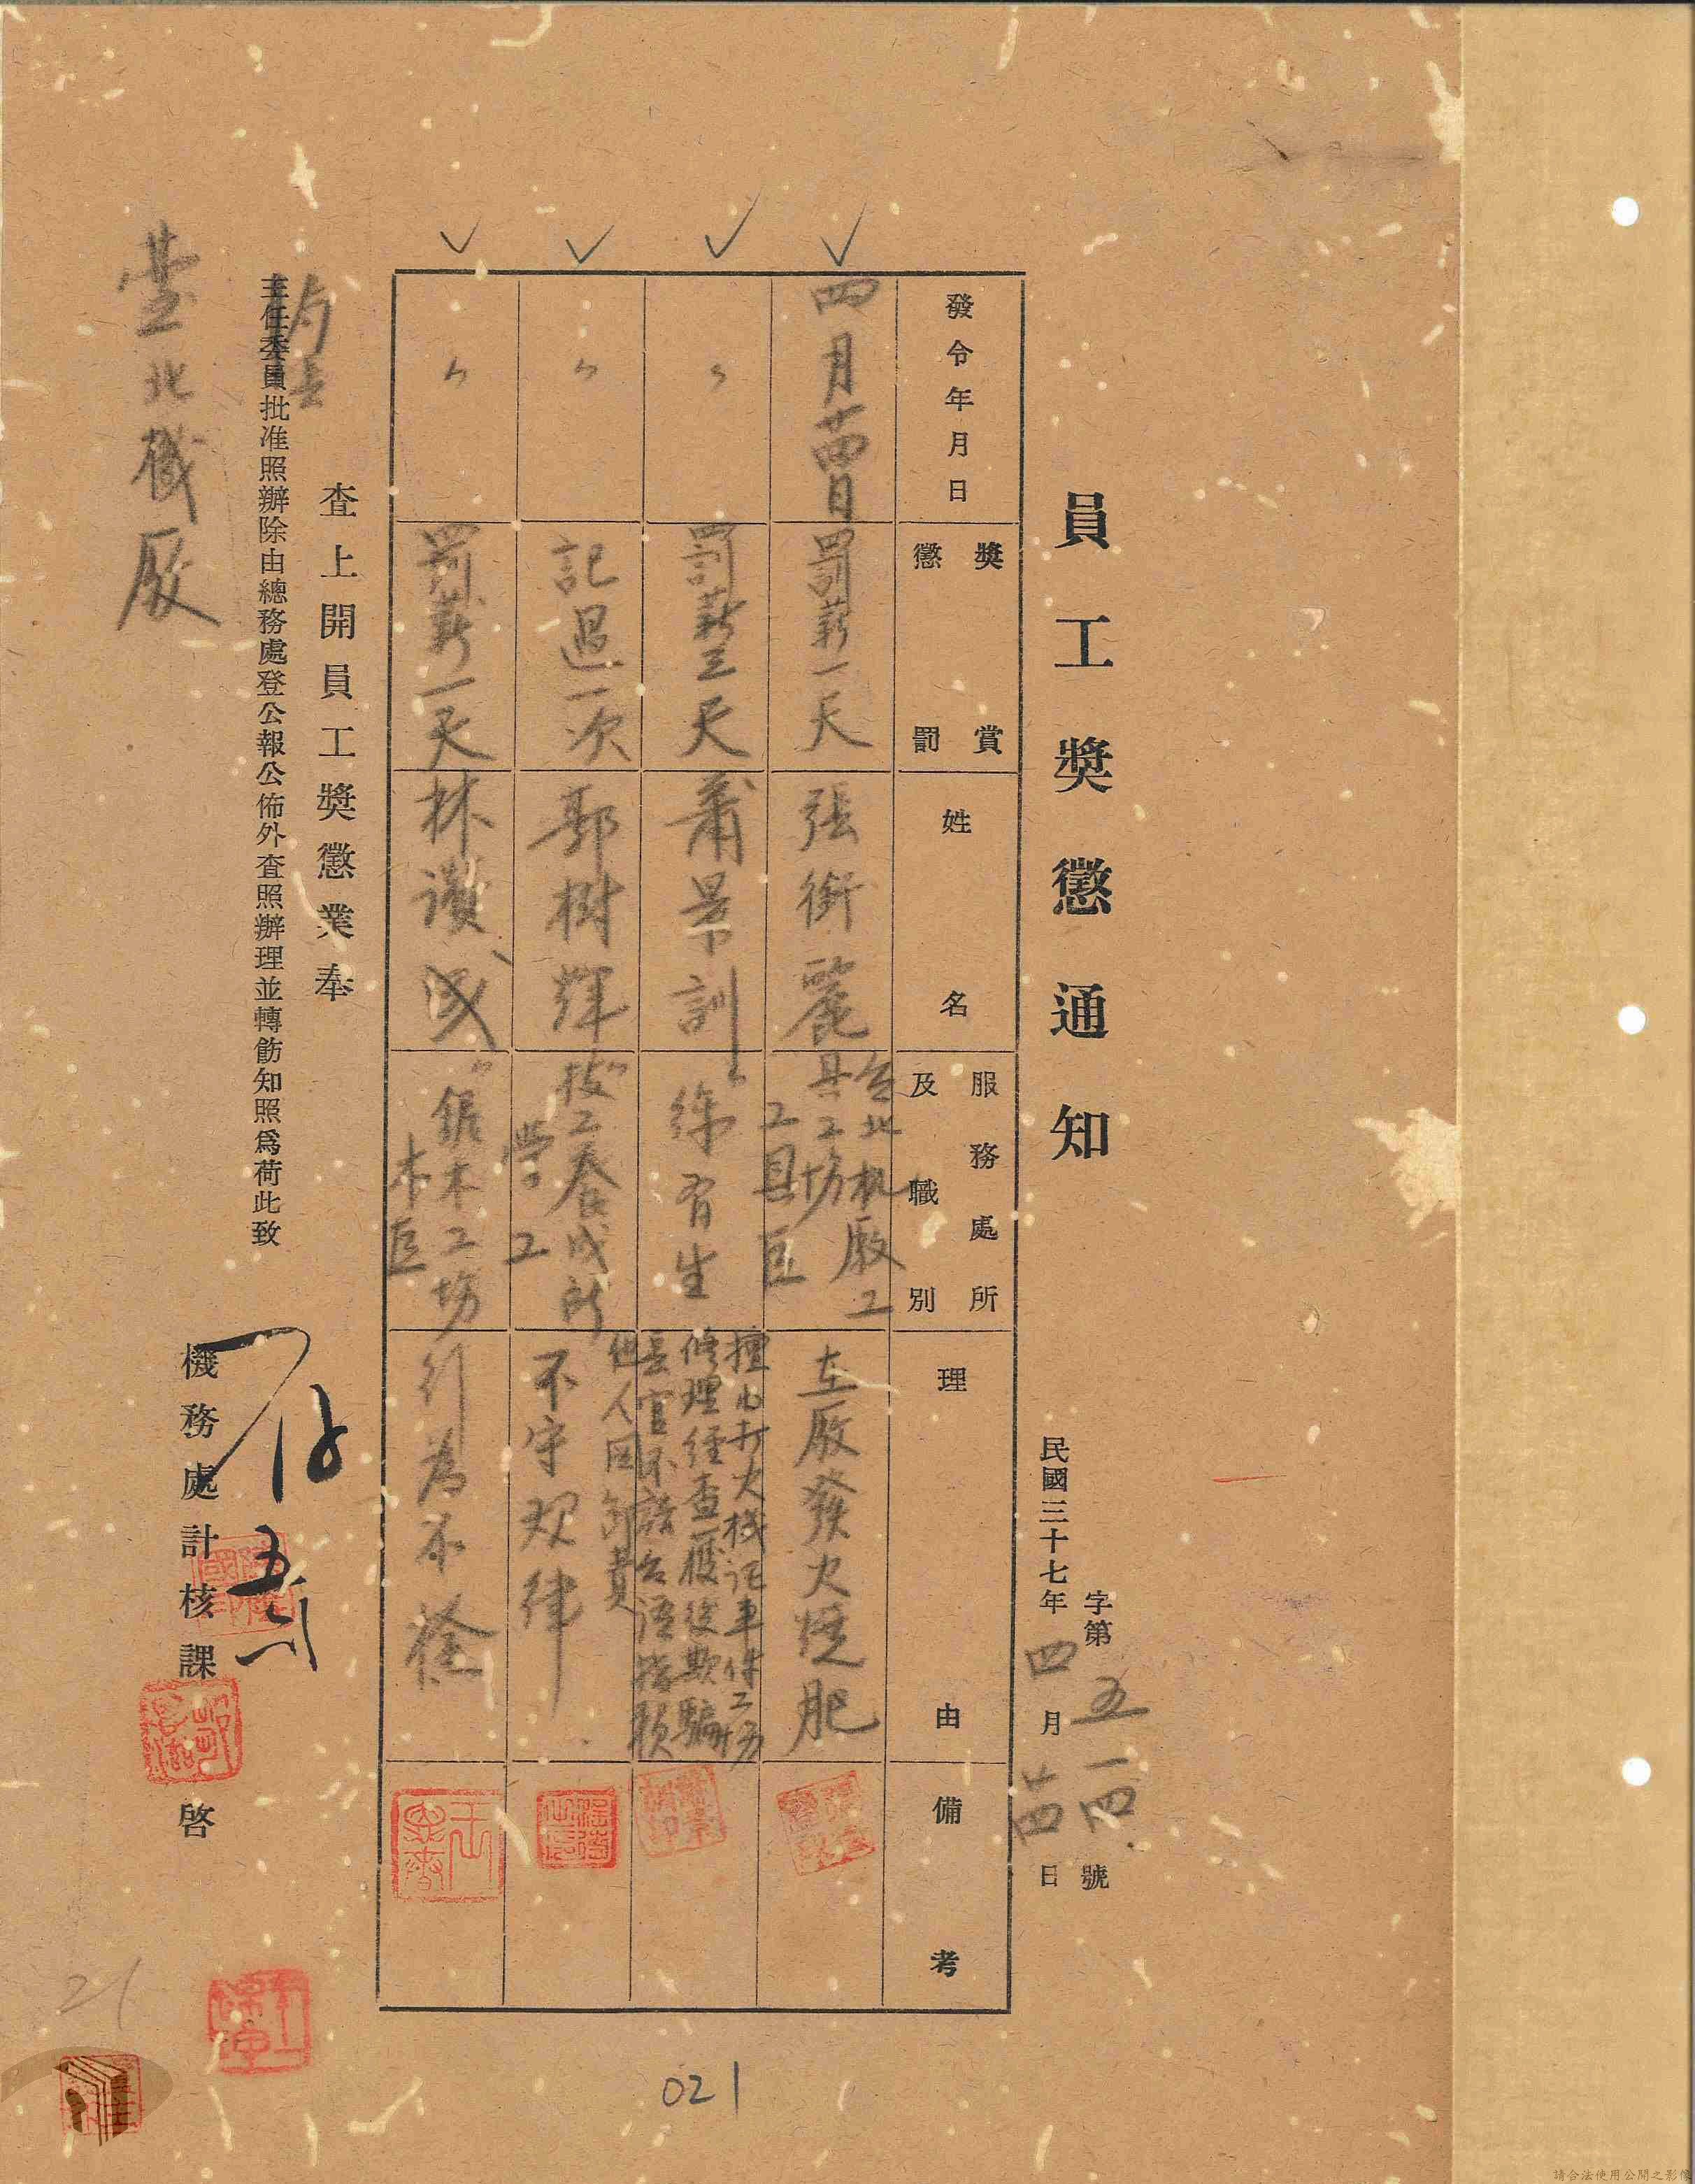 員工獎懲通知
字第五一四號
民國三十七年四月十四日
發令年月日
獎賞
懲罰
姓名
服務處所
及職別
理由
備考
四月十四日
罰薪一天
張衔麗
台北机廠工
具工場
工具匠
在廠發火燒肥
〃
罰薪三天
蕭景訓
〃練習生
擅以打火機託車件工場
修理經查獲後欺騙
長官不諳台語
〃
記過一次
郭樹輝
〃技工養成所
學工
他人因
不守規律
〃
罰薪一天
林讚成
〃鋸木工場
木匠
行為不檢
查上開員工獎懲業奉
局長
主任委員批准照辦除由總務處登公報公佈外查照辦理並轉飭知照爲荷此致
臺北機廠
機務處計核課啓
21
021
請合法使用公開之影像